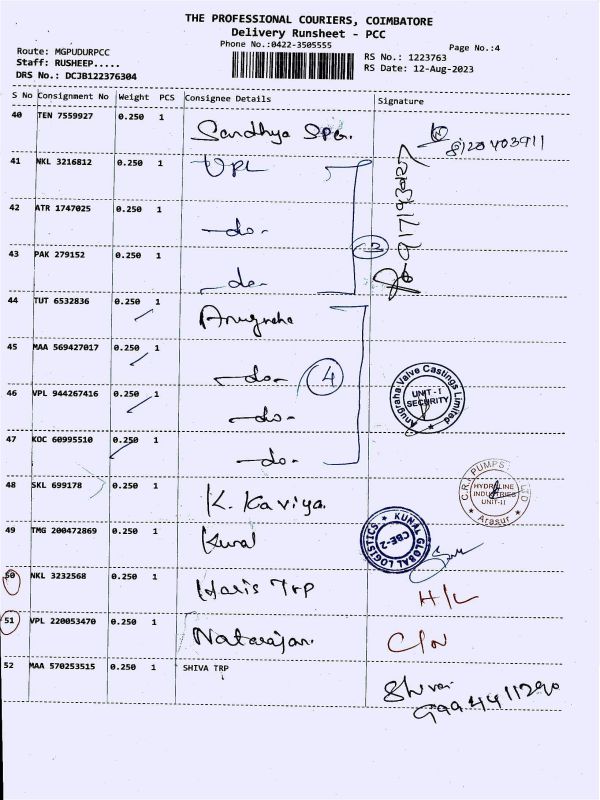 THE PROFESSIONAL COURIERS, COIMBATORE
Delivery Runsheet - PCC
Phone No.:0422-3505555
Page No.:4
Route: MGPUDURPCC
Staff: RUSHEEP.....
DRS No.: DCJB122376304
RS No.: 1223763
RS Date: 12-Aug-2023
S No Consignment No Weight PCS Consignee Details Signature
40 TEN 7559927 0.250 1 Sandhya Spg.
8120403911
41 NKL 3216812 0.250 1 UPL
42 ATR 1747025 0.250 1 -do-
3
43 PAK 279152 0.250 1 -do-
44 TUT 6532836 0.250 1 Anugraha
45 MAA 569427017 0.250 1 -do-
4
46 VPL 944267416 0.250 1 -do-
Anugraha Valve Castings Limited
UNIT - I
SECURITY
47 KOC 60995510 0.250 1 -do-
48 SKL 699178 0.250 1 K. Kaviya.
C.R.I. PUMPS LTD
HYDROLINE
INDUSTRIES
UNIT-II
Arasur
49 TMG 200472869 0.250 1 Kunal
KUNAL GLOBAL LOGISTICS
CBE-2
50 NKL 3232568 0.250 1 Haris Trp H/L
51 VPL 220053470 0.250 1 Natarajan. C/N
52 MAA 570253515 0.250 1 SHIVA TRP Shiva
9994411290